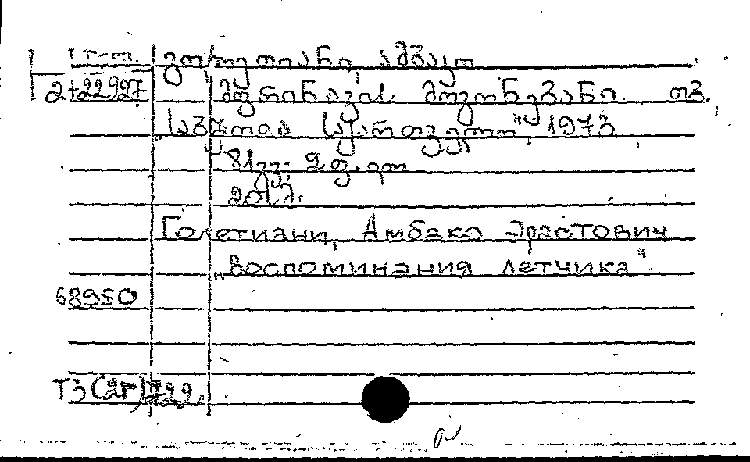 გოლეთიანი, ამბაკო
2+22927 მფრინავის მოგონებანი. თბ.,
„საბჭოთა საქართველო", 1973
81გვ; 2 ფ. ილ
20კ.
Голетиани, Амбако Эрастович
„воспоминания летчика"
68950
ТЗ(2Г)